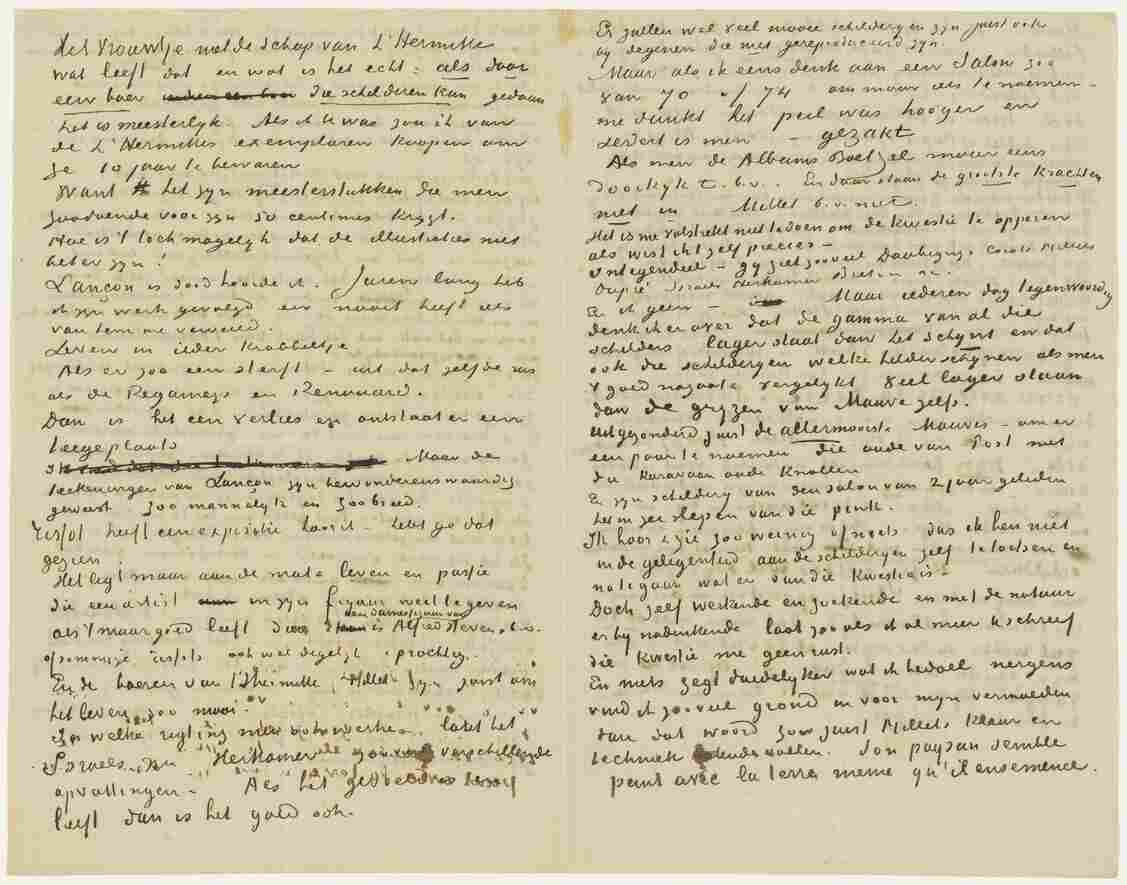 Het vrouwtje met de schop van L'Hermitte
wat leeft dat en wat is het echt: als door
een boer die schilderen kan gedaan
het is meesterlyk. Als ik U was zou ik van
de L'Hermittes exemplaren koopen om
ze 10 jaar te bewaren
Want het zyn meesterstukken die men
zoodoende voor zyn 50 centimes krygt.
Hoe is 't toch mogelyk dat de illustraties niet
beter zyn!
Lançon is dood hoorde ik. Jaren lang heb
ik zyn werk gevolgd en nooit heeft iets
van hem me verveeld.
Leven in ieder krabbeltje
Als er zoo een sterft – uit dat zelfde ras
als de Regameys en Renouard.
Dan is het een verlies en ontstaat er een
leege plaats
Maar de
teekeningen van Lançon zyn bewonderenswaardig
geweest zoo mannelyk en zoo breed.
Tissot heeft een expositie hoor ik – hebt ge dat
gezien.
Het legt maar aan de mate leven en passie
die een artist in zyn figuur weet te geven
als 't maar goed leeft
een damesfiguur van
is Alfred Stevens b.v.
of sommige Tissots ook wel degelyk prachtig.
En de boeren van l'Lhermitte, Millet zyn juist om
het leven zoo mooi.
In welke rigting men ook werke – laat het
Israels zyn Herkomer verschillende
opvattingen – Als het
leeft dan is het goed ook.
Er zullen wel veel mooie schilderyen zyn juist ook
by degenen die niet gereproduceerd zyn.
Maar als ik eens denk aan een Salon zoo
van 70 of 74 om maar iets te noemen –
me dunkt het peil was hooger en
sedert is men – gezakt
Als men de Albums Boetzel maar eens
doorkykt t.b.v. En daar staan de grootste krachten
niet in Millet b.v. niet.
Het is me volstrekt niet te doen om de kwestie te opperen
als wist ik t zelf precies –
Integendeel – gy ziet zooveel Daubignys Corots Millets
Dupré Israels Herkomer
En ik geen – Maar iederen dag tegenwoordig
denk ik er over dat de gamma van al die
schilders lager staat dan het schynt en dat
ook die schilderyen welke helder schynen als men
t goed nagaat & vergelykt veel lager staan
dan de gryzen van Mauve zelfs.
uitgezonderd juist de allermooiste Mauves – om er
een paar te noemen die oude van Post met
de karavaan oude knollen
En zyn schildery van den salon van 2 jaar geleden
het in zee slepen van die pink.
Ik hoor & zie zoo weinig of niets dus ik ben niet
in de gelegenheid aan de schilderyen zelf te toetsen en
na te gaan wat er van die kwestie is –
Doch zelf werkende en zoekende en met de natuur
er by nadenkende laat zoo als ik al meer U schreef
die kwestie me geen rust.
En niets zegt duidelyker wat ik bedoel nergens
vind ik zooveel grond in voor myn vermoeden
dan dat woord over juist Millets kleur en
techniek Son paysan semble
peint avec la terre meme qu'il ensemence.